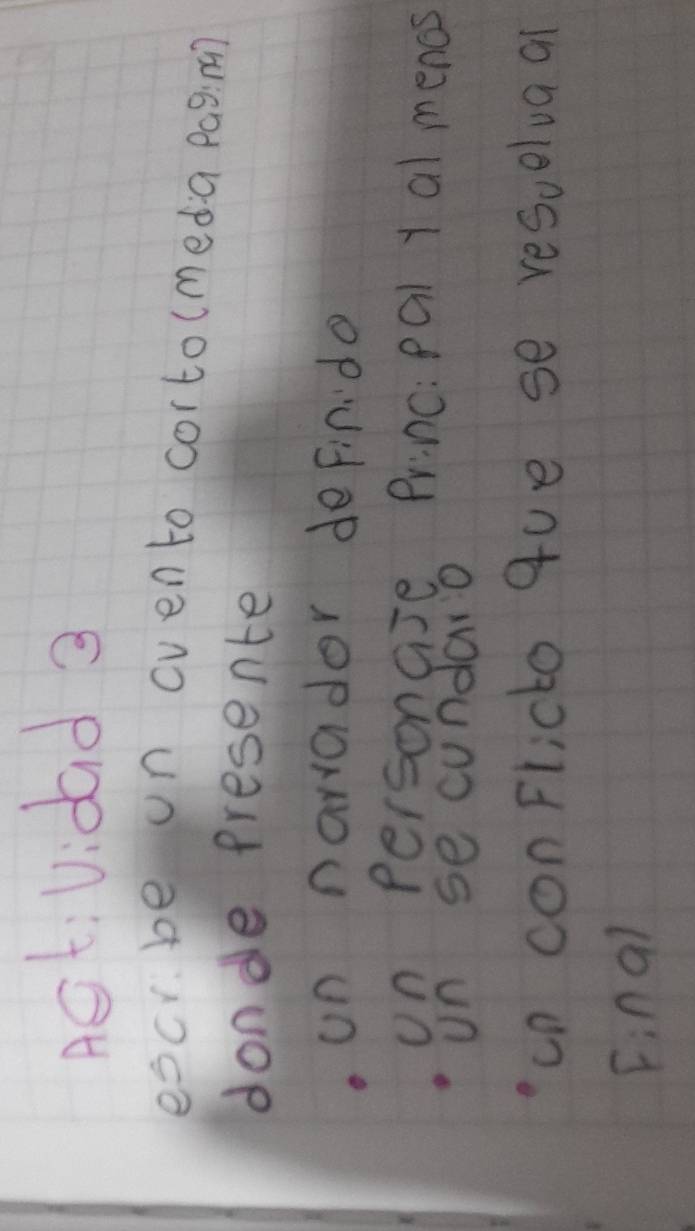 ActiVidad 3
escribe un cuento corto (media pagina)
donde presente
• un narrador definido
• un Personaje Principal y al menos
• un secundario
• un conflicto que se resuelva al
final